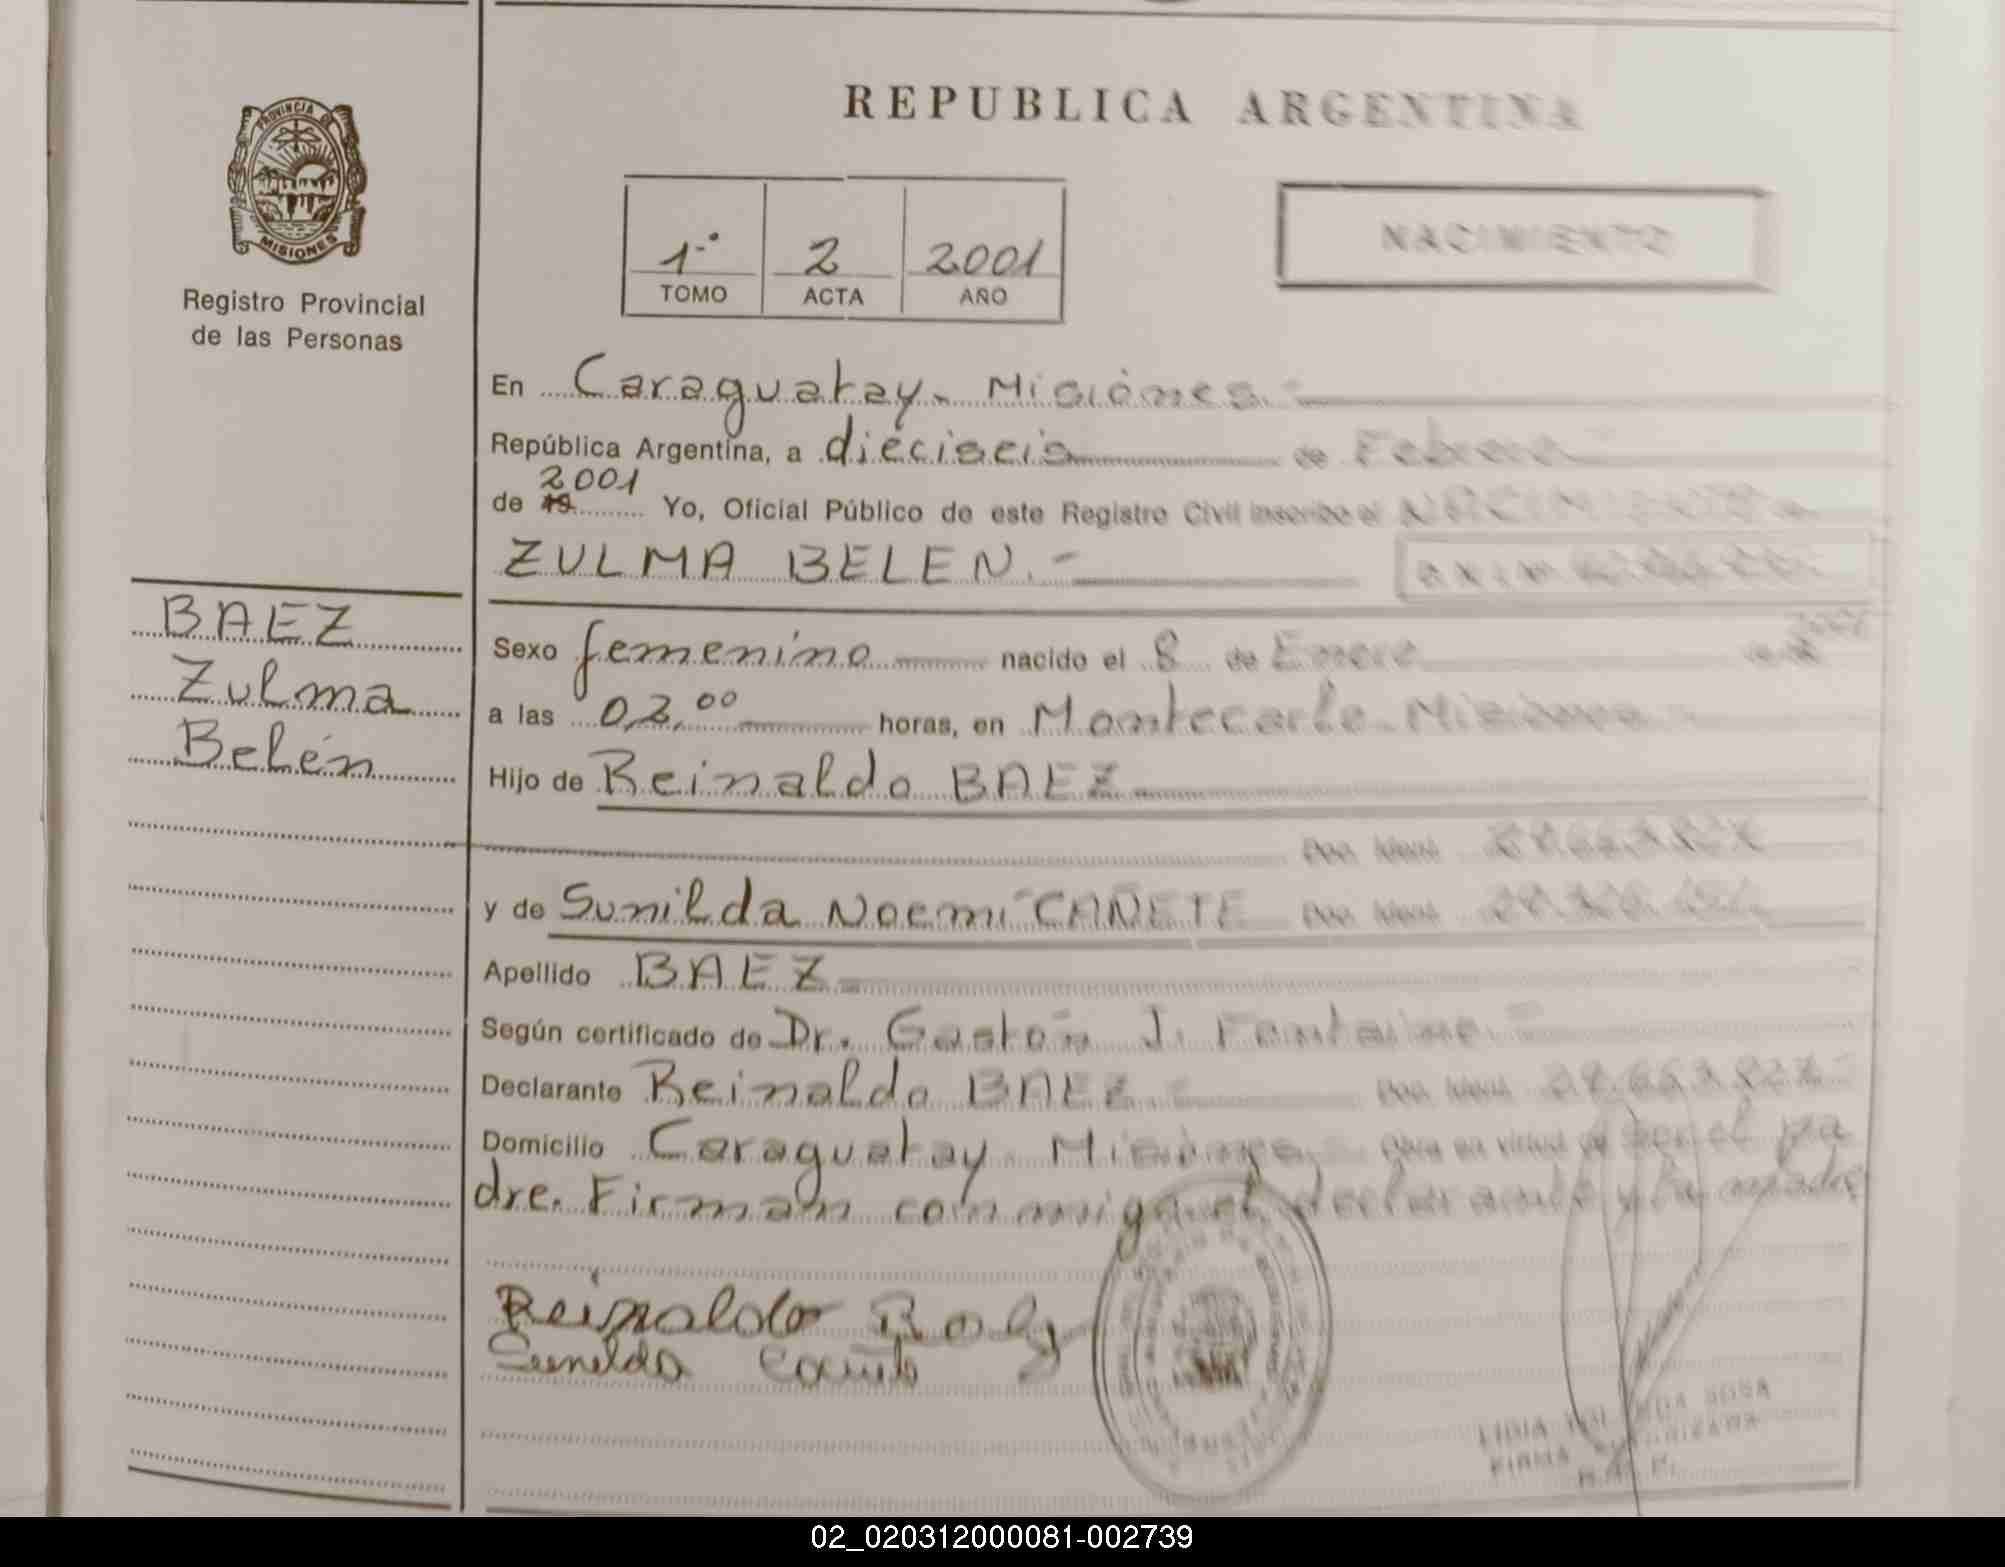 PROVINCIA DE
MISIONES
Registro Provincial
de las Personas
BAEZ
Zulma
Belén
REPUBLICA ARGENTINA
1.º 2 2001
TOMO ACTA AÑO
NACIMIENTO
En Caraguatay - Misiones.=
República Argentina, a dieciseis de Febrero
de 19 2001 Yo, Oficial Público de este Registro Civil inscribo el NACIMIENTO de
ZULMA BELEN.-
Sexo femenino nacido el 8 de Enero de 2001
a las 03,00 horas, en Montecarlo - Misiones -
Hijo de Reinaldo BAEZ
Doc. Ident.
y de Sunilda Noemi CAÑETE Doc. Ident.
Apellido BAEZ
Según certificado de Dr. Gastón J. Fontaine.=
Declarante Reinaldo BAEZ.= Doc. Ident.
Domicilio Caraguatay - Misiones. Obra en virtud de ser el pa
dre. Firman conmigo el declarante y la madre
Reinaldo Baez
Sunilda Cañete
LIDIA SOSA
FIRMA AUTORIZADA
02_020312000081-002739